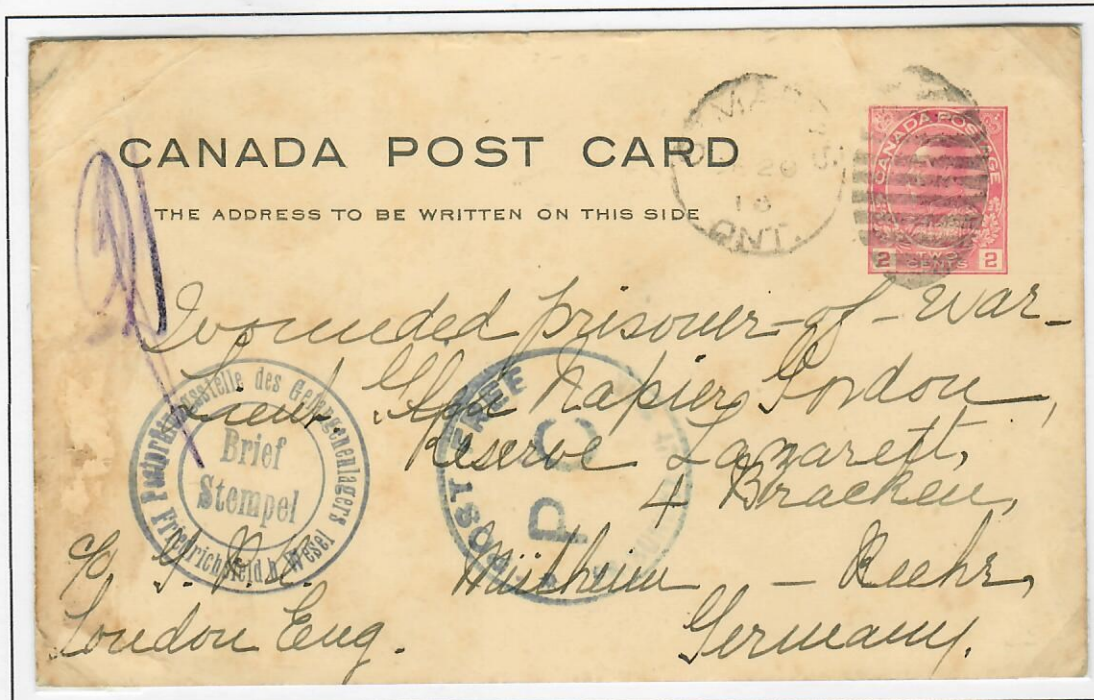 CANADA POST CARD
THE ADDRESS TO BE WRITTEN ON THIS SIDE
ST. MARYS
28
18
ONT.
CANADA POSTAGE
2 TWO CENTS 2
Wounded prisoner-of-war-
Lieut. Napier Gordon,
Reserve Lazarett,
4 Bracken,
Mütheim - Ruehr,
Germany.
c/o
London Eng.
Postprüfungsstelle des Gefangenenlagers
Brief
Stempel
Friedrichsfeld b. Wesel
POST FREE
P C